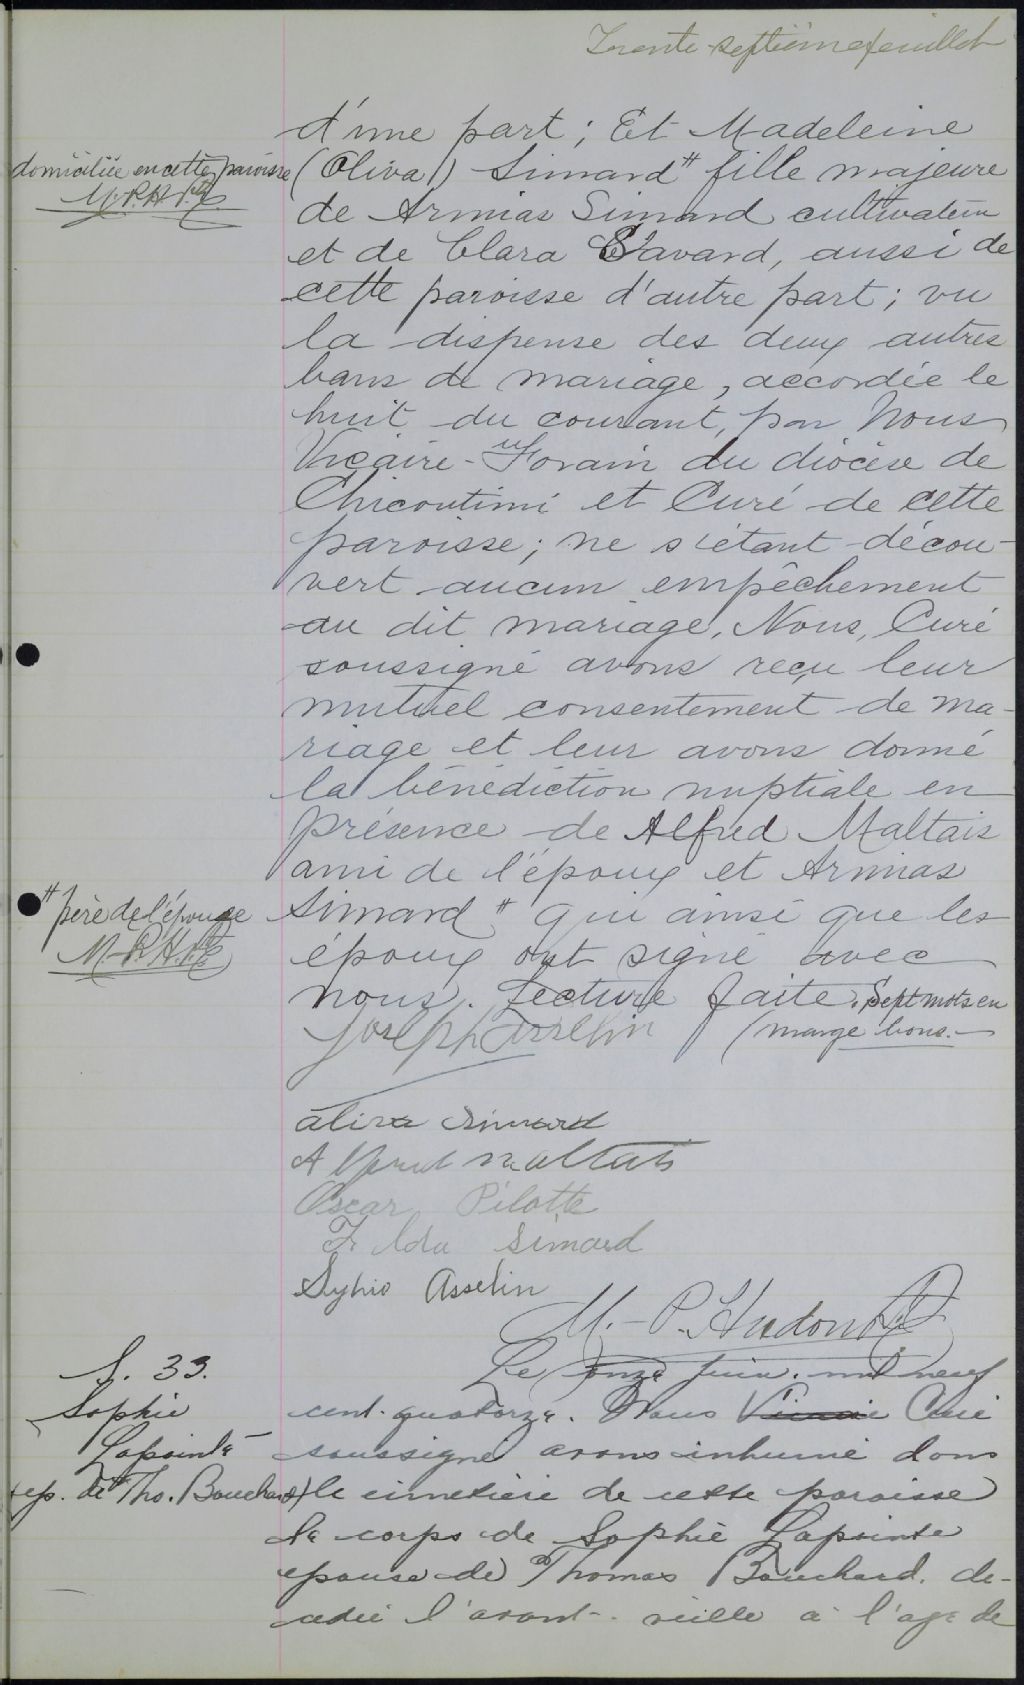 Trente-septième feuillet
d'une part; Et Madeleine
domiciliée en cette paroisse
M.P.H. Ptre
(Oliva) Simard # fille majeure
de Armias Simard cultivateur
et de Clara Savard, aussi de
cette paroisse d'autre part; vu
la dispense des deux autres
bans de mariage, accordée le
huit du courant, par Nous
Vicaire-Forain du diocèse de
Chicoutimi et Curé de cette
paroisse; ne s'étant décou-
vert aucun empêchement
au dit mariage, Nous, Curé
soussigné avons reçu leur
mutuel consentement de ma-
riage et leur avons donné
la bénédiction nuptiale en
présence de Alfred Maltais
ami de l'époux et Armias
# père de l'épouse
M.P.H. Ptre
Simard # qui ainsi que les
époux ont signé avec
nous. Lecture faite. Sept mots en
marge bons.-
Joseph Asselin
Simard
Alfred Maltais
Oscar Pilotte
Simard
Sylvio Asselin
M.-P. Hudon Ptre
S. 33.
Sophie
Lapointe
(ép. de Tho. Bouchard)
Le onze juin. mil neuf
cent. quatorze. Nous Vicaire Curé
soussigné avons inhumé dans
le cimetière de cette paroisse
le corps de Sophie Lapointe
épouse de Thomas Bouchard. dé-
cédée l'avant-veille à l'age de